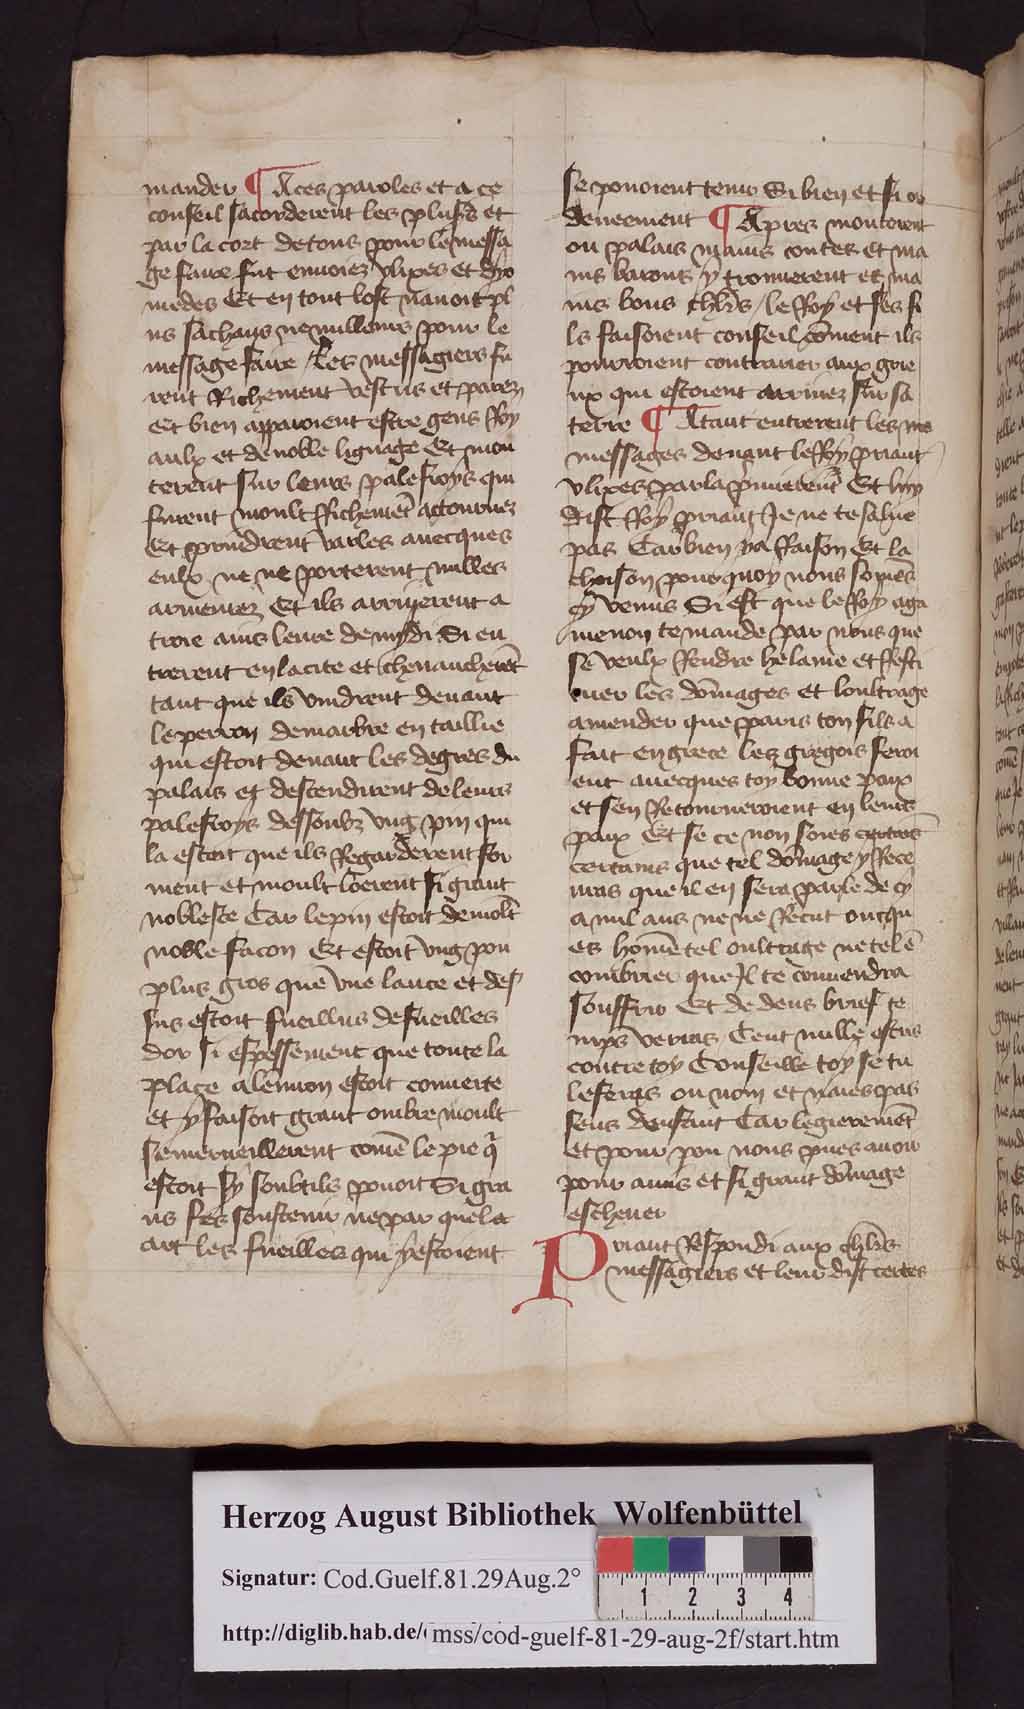 mander ¶ Aces paroles et a ce
conseil sacorderent les plusrs et
par la cort de tous pour le messa
ge faire fut envoiez vlixes et dyo
medes Et en tout lost nauoit pl
us sachans ne milleurs pour le
message faire / Les messagiers fu
rent Richement vestus et parez
Et bien apparoient estre gens Roy
aulx et de noble lignage Et mon
terent sur leurs palefroys qui
furent moult Richemēt actournez
Et prindrent varles auecques
eulx ne ne porterent nulles
armeurez Et ils arriuerent a
troie ains leure de mydi Si en
trerent en la cite et cheuaucherēt
tant que ils vindrent deuant
le perron de marbre en taillie
qui estoit deuant les degres du
palais et descendirent de leurs
palefroys dessoubz vng pin qui
la estoit que ils Regarderent for
ment et moult loerent si grant
noblesce Car le pin estoit de molt
noble facon Et estoit vng pou
plus gros que vne lance et des
sus estoit fueillus de fueilles
dor si espessement que toute la
place alenuiron estoit couuerte
et y faisoit grant ombre moult
semerueillerent comē le pie q̄
estoit sy soubtils pouoit Si gra
ns fes soustenir ne par quel a
art les fueilles qui y estoient
se pouoient tenir Si bien et si or
deneement ¶ Apres monterent
ou palais mains contes et ma
ins barons y trouuerent et ma
ins bons chl̄rs / le Roy et ses fi
ls faisoient conseil cōment ils
pourroient contrarier aux grie
ux qui estoient arriuez sur sa
terre ¶ Atant entrerent les me
messages deuant le Roy priant
vlixes parla p̄mierement Et luy
dist Roy priant Je ne te salue
pas Car bien ya Raison Et la
choison pour quoy nous somēs
cy venus Si est que le Roy aga
menon te mande par nous que
se veulx Rendre helaine et Resti
tuer les dōmages et loultrage
amender que paris ton fils a
fait en grece les gregois feroi
ent auecques toy bonne paix
et sen Retourneroient en leurs
paix Et se ce non soies
certains que tel dōmage y Rece
uras que il en sera parle de cy
a mil ans ne ne Recut oncqu
es homē tel oultrage ne tel ē
combrier que Il te conuendra
souffrir Et de dens brief te
mps verras Cent mille escus
contre toy Conseille toy se tu
le feras ou nom et naies pas
sens denfant Car legieremēt
et pour pou nous pues auoir
pour amis et si grant dōmage
escheuer
Priant Respondi aux chl̄rs
messagiers et leur dist certes
Herzog August Bibliothek Wolfenbüttel
Signatur: Cod.Guelf.81.29Aug.2°
1 2 3 4
http://diglib.hab.de/ mss/cod-guelf-81-29-aug-2f/start.htm